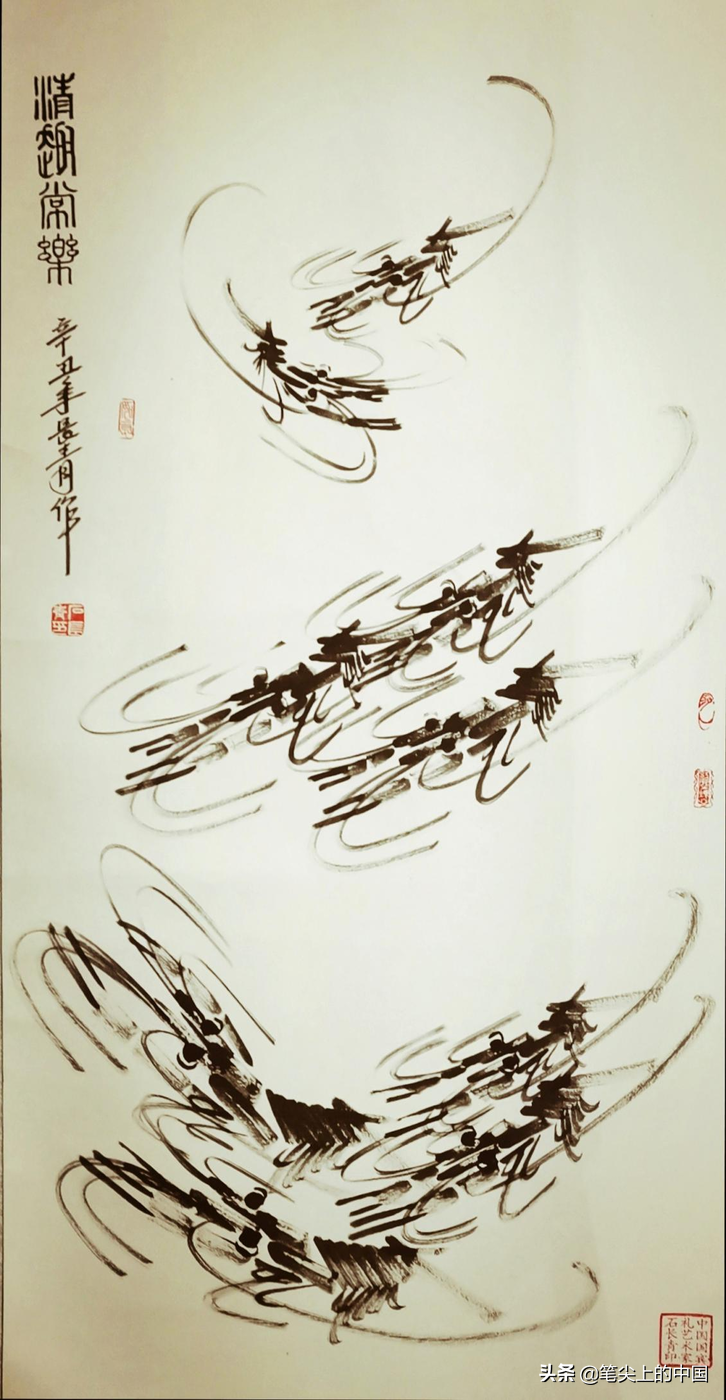 清趣常樂
辛丑年長青作
中国国宾
礼艺术家
石长青印
头条 @笔尖上的中国